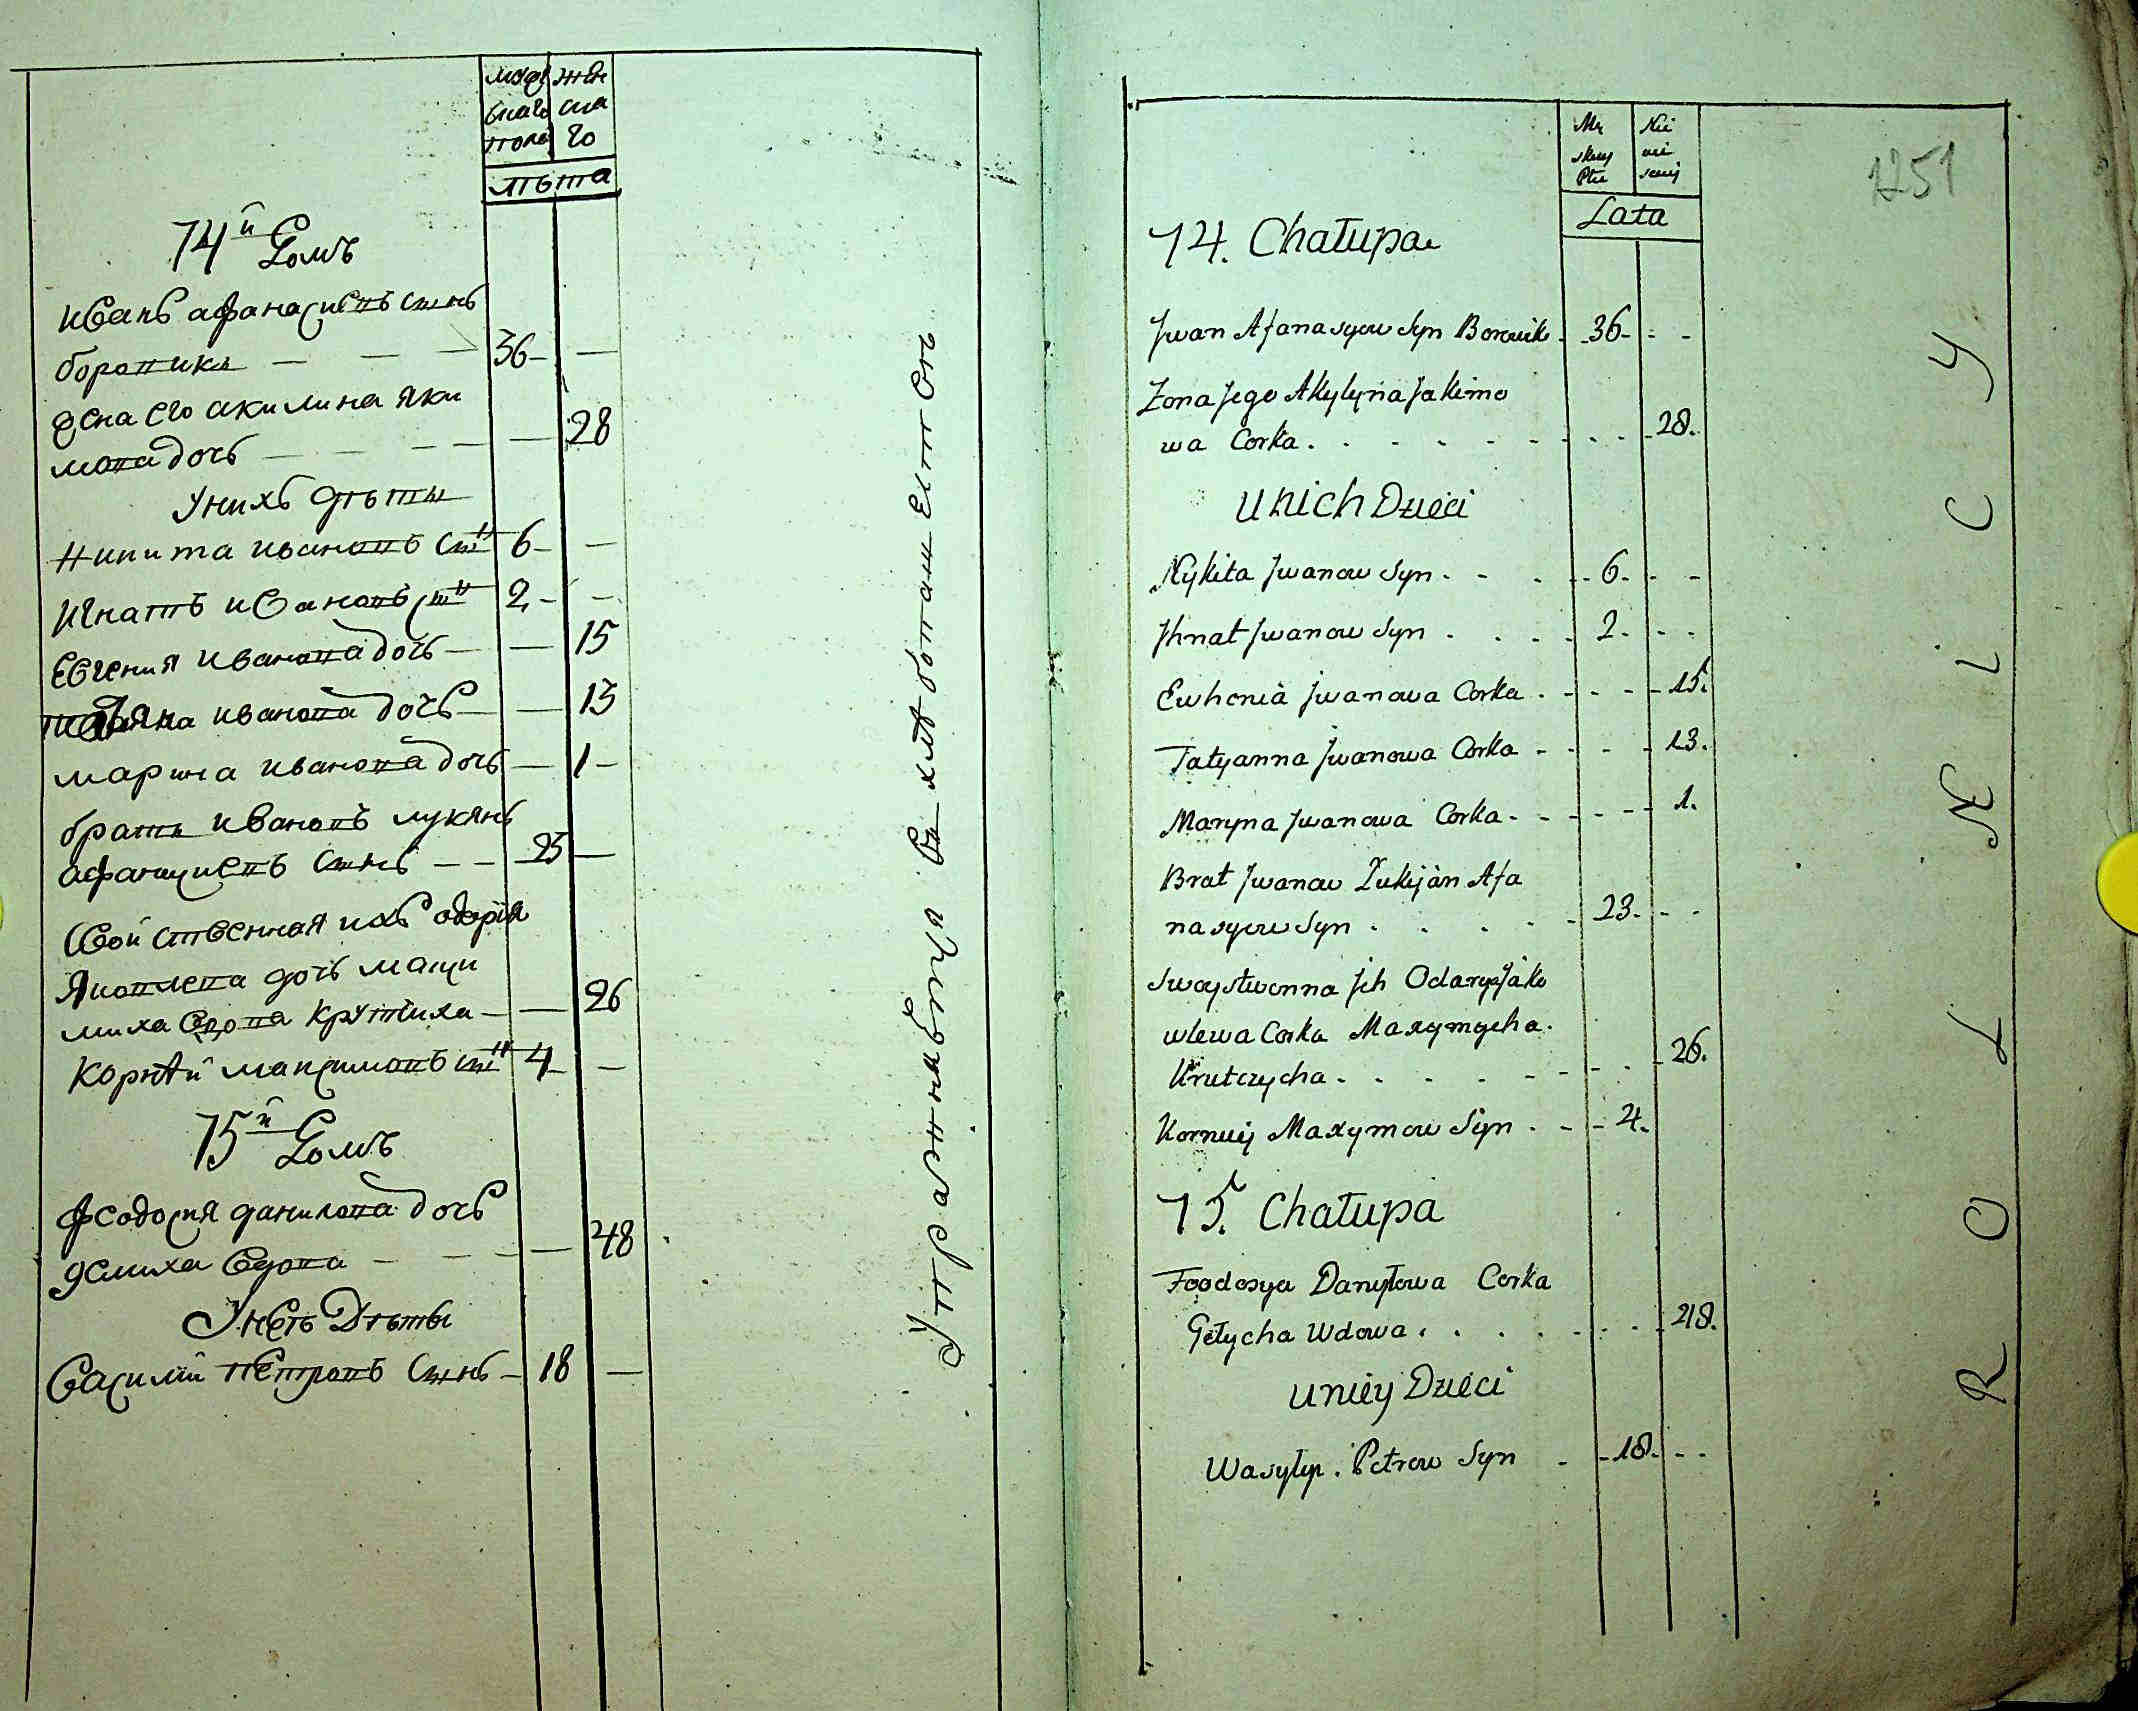 мус
скаго
пола
жен
ска
го
лѣта
74й Домъ
иванъ афанасиевъ сынъ
боровикъ — — — 36 —
жена его акилина яки
мова дочь — — — — 28
У нихъ дѣти
Никита ивановъ сынъ 6 —
Игнатъ ивановъ сынъ 2 —
Евгения иванова дочь — — 15
татьяна иванова дочь — — 13
марина иванова дочь — 1 —
братъ ивановъ лукянъ
афанасиевъ сынъ — — 23 —
Свойственная ихъ одария
Яковлева дочь макси
миха вдова крутчиха — — 26
корнѣй максимовъ сынъ 4 —
75й Домъ
феодосия данилова дочь
демиха вдова — — — — 48
У неѣ Дѣти
Василий петровъ сынъ — 18 —
Упражнѣется въ хлѣбопашествѣ
1251
Mę
skiey
Płci
Nie
wie
sciej
Lata
74. Chałupa
Jwan Afanasyew Syn Borowik - 36 - - -
Zona Jego Akylyna Jakimo
wa Corka . - - - - - - - 28.
U nich Dzieci
Nykita Jwanow Syn . - . - 6. - -
Jhnat Jwanow Syn . . . . 2. - -
Ewhenia Jwanowa Corka . - - - - 15.
Tatyanna Jwanowa Corka - - - - 13.
Maryna Jwanowa Corka . - - - - 1.
Brat Jwanow Łukijan Afa
nasyew Syn . . . . - 23. - -
Swoystwenna Jch Odarya Jako
wlewa Corka Maxymycha.
Krutczycha . . . - - - - - 26.
Korniey Maxymow Syn . - - 4.
75. Chałupa
Feodosya Daniłowa Corka
Gełycha Wdowa . . . . - - - 48.
U niey Dzieci
Wasyłyi . Petrow Syn - - 18. - -
ROLNICY